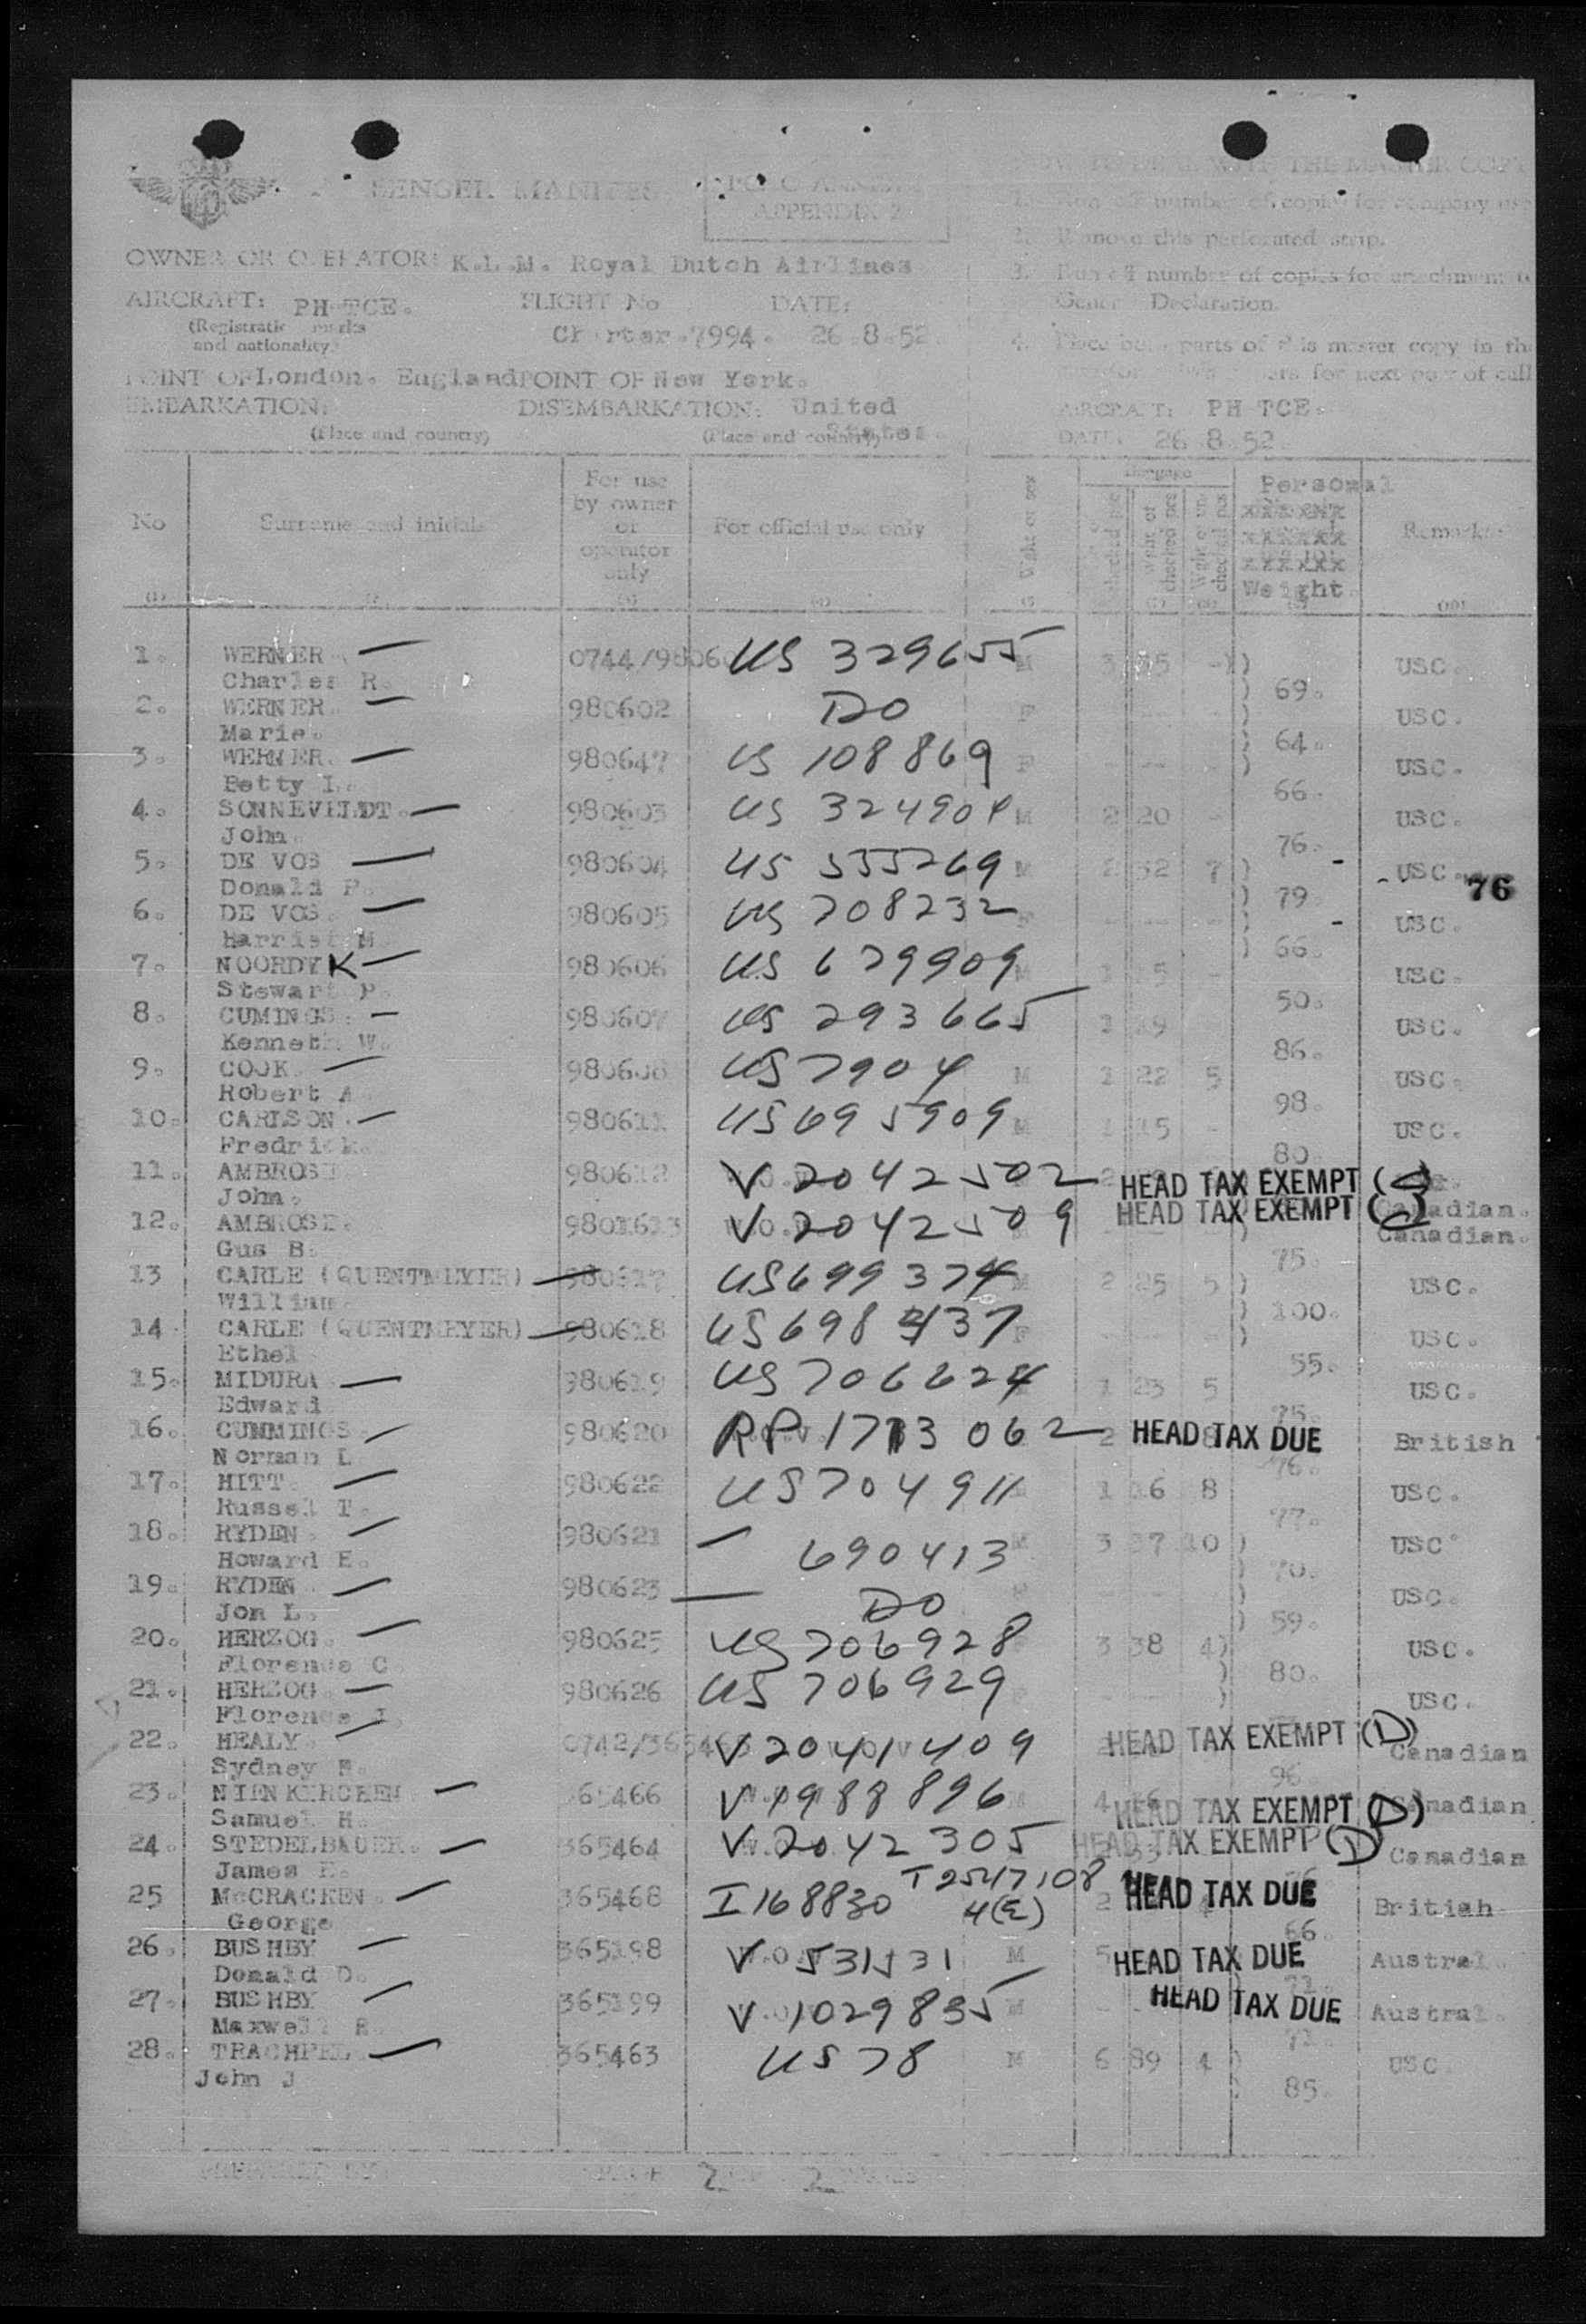 SENGER MANIFES
APPENDIX 2
THE MASTER COPY
number of copies for company use
2. Remove this perforated strip.
3. Run off number of copies for attachment to
General Declaration.
4. Place both parts of this master copy in the
for next port of call
OWNER OR OPERATOR: K.L.M. Royal Dutch Airlines
AIRCRAFT: PH-TCE. FLIGHT No DATE:
(Registration marks
and nationality) Charter 7994. 26.8.52.
POINT OF London. England POINT OF New York.
EMBARKATION: DISEMBARKATION: United
(Place and country) (Place and country) States.
AIRCRAFT: PH TCE.
DATE: 26 8 52
No Surname and initials For use by owner or operator only For official use only Baggage Personal Weight Remarks
1. WERNER 0744/9806 US 329655 M 3 35 - USC.
Charles R. 69.
2. WERNER. 980602 DO F USC.
Marie. 64.
3. WERNER. 980647 US 108869 F USC.
Betty L. 66.
4. SONNEVELDT. 980603 US 324904 M 2 20 - USC.
John. 76.
5. DE VOS 980604 US 555269 M 2 32 7 USC. 76
Donald P. 79.
6. DE VOS. 980605 US 708232 USC.
Harriet M. 66.
7. NOORDYK 980606 US 629909 M 1 15 - USC.
Stewart P. 50.
8. CUMINGS. 980607 US 293665 1 19 USC.
Kenneth W. 86.
9. COOK. 980608 US 7904 M 1 22 5 USC.
Robert A. 98.
10. CARLSON. 980611 US 695909 M 1 15 - USC.
Fredrick. 80.
11. AMBROSE 980612 V 2042502 HEAD TAX EXEMPT
John. Canadian.
12. AMBROSE. 9801613 V 2042509 HEAD TAX EXEMPT
Gus B. Canadian. 75.
13 CARLE (QUENTMEYER) 980617 US 699374 M 2 25 5 USC.
William. 100.
14. CARLE (QUENTMEYER) 980618 US 698437 F USC.
Ethel 55.
15. MIDURA 980619 US 706624 1 23 5 USC.
Edward 75.
16. CUMMINGS. 980620 RP 1713062 HEAD TAX DUE British
Norman L 76.
17. HITT. 980622 US 704911 1 16 8 USC.
Russel T. 77.
18. RYDEN. 980621 690413 M 3 27 10 USC
Howard E. 70.
19. RYDEN 980623 DO USC.
Jon L. 59.
20. HERZOG. 980625 US 706928 3 38 4 USC.
Florence C. 80.
21. HERZOG. 980626 US 706929 USC.
Florence I.
22. HEALY. 0742/365465 V 2041409 HEAD TAX EXEMPT (D) Canadian
Sydney E. 96.
23. NIENKERCHEN. 365466 V 1988896 HEAD TAX EXEMPT (D) Canadian
Samuel H.
24. STEDELBAUER. 365464 V 2042305 HEAD TAX EXEMPT (D) Canadian
James E. T 2547108
25 McCRACKEN. 365468 I 168830 4(E) HEAD TAX DUE British
George 66.
26. BUSHBY 365198 V 531531 M HEAD TAX DUE Austral.
Donald D.
27. BUSHBY 365199 V 1029835 M HEAD TAX DUE Austral.
Maxwell R. 71.
28. TRACHPEL 365463 US 78 M 6 89 4 USC.
John J 85.
PREPARED BY PAGE 2 OF 2 PAGES